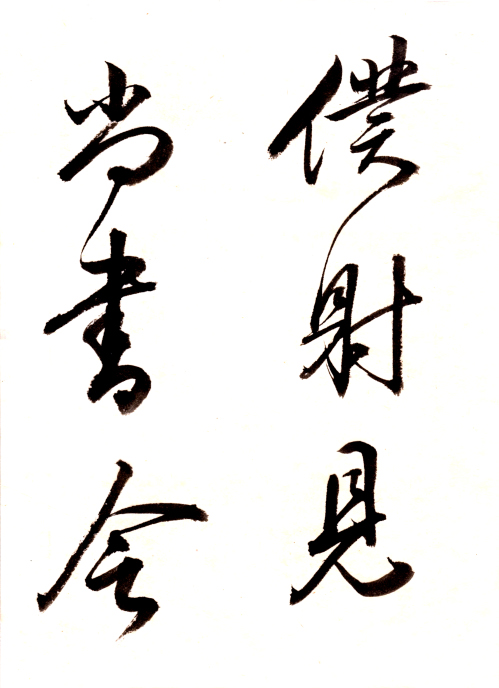 僕射見
尚書令